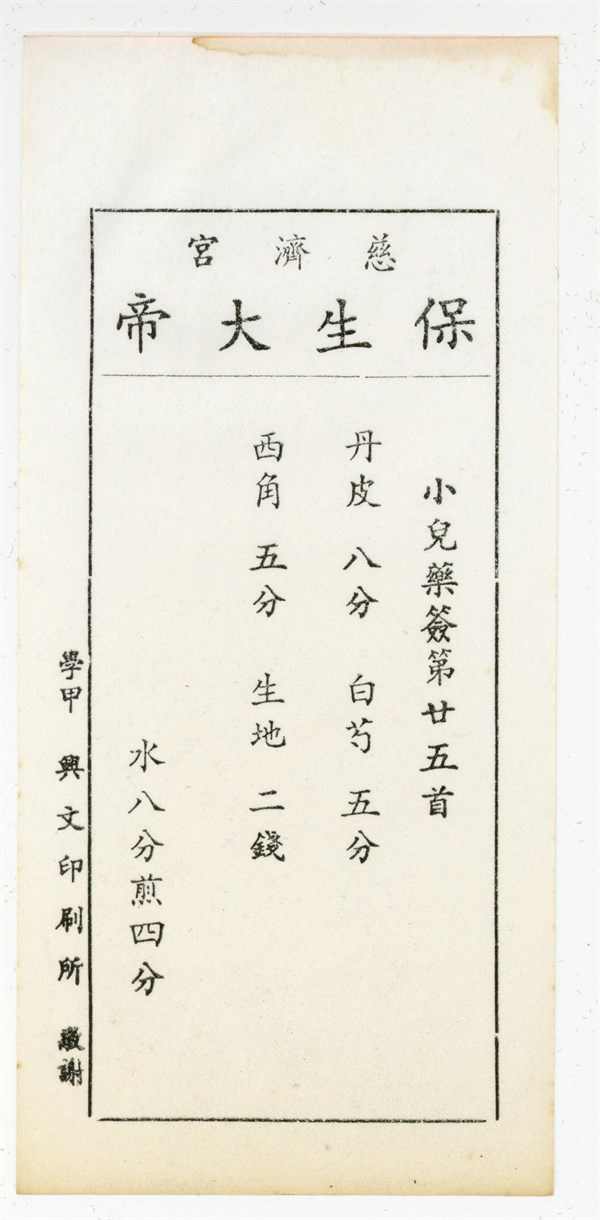 慈濟宮
保生大帝
小兒藥簽第廿五首
丹皮 八分 白芍 五分
西角 五分 生地 二錢
水八分煎四分
學甲 興文印刷所 敬謝